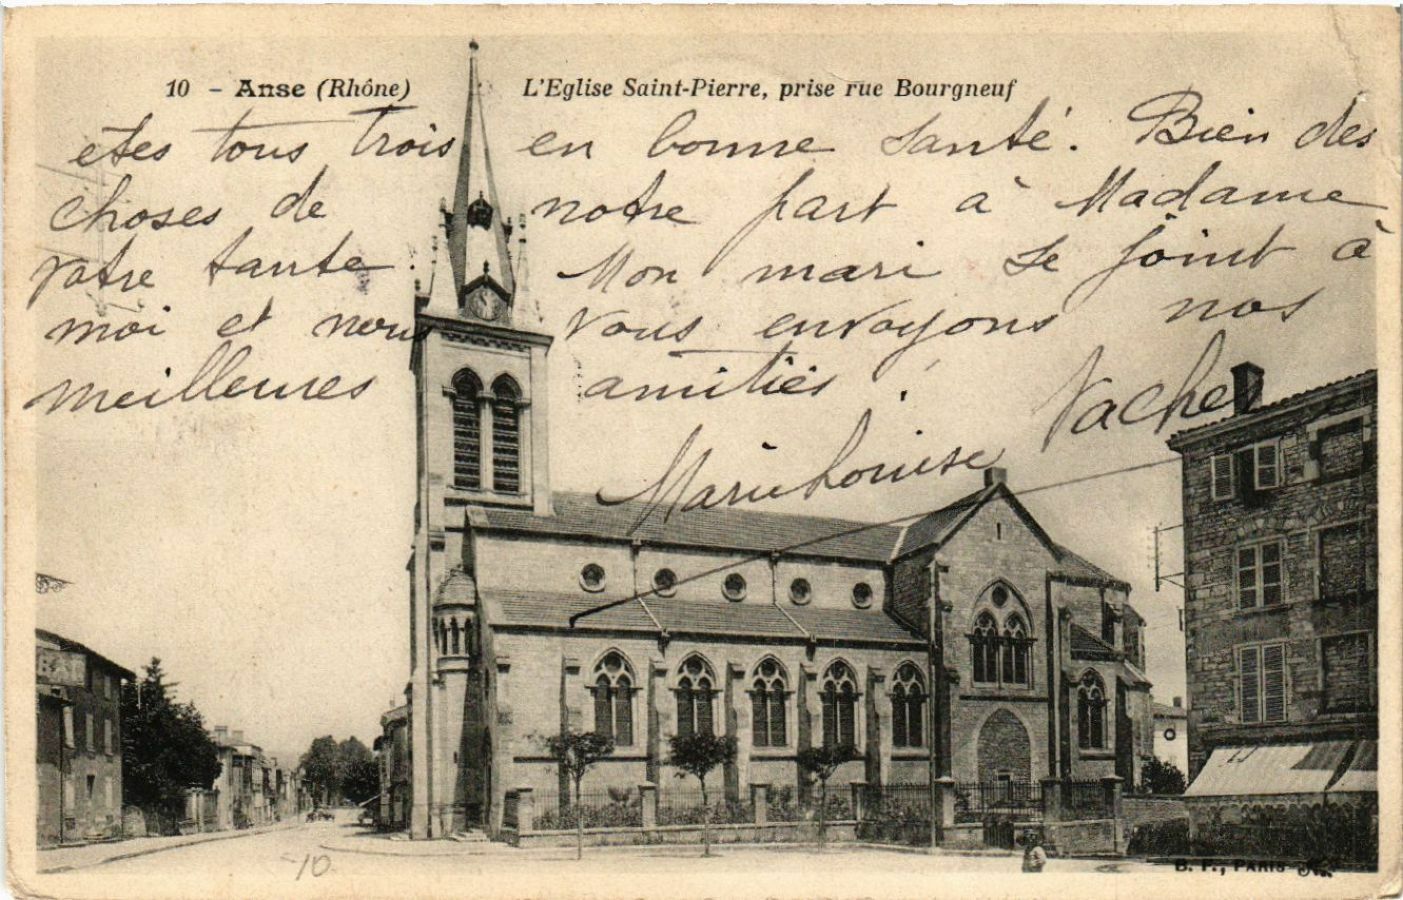 10 - Anse (Rhône) L'Eglise Saint-Pierre, prise rue Bourgneuf
etes tous trois en bonne santé. Bien des
choses de notre part à Madame
votre tante. Mon mari se joint à
moi et nous vous envoyons nos
meilleures amitiés.
Marie Louise Vacher
10
B. F., PARIS